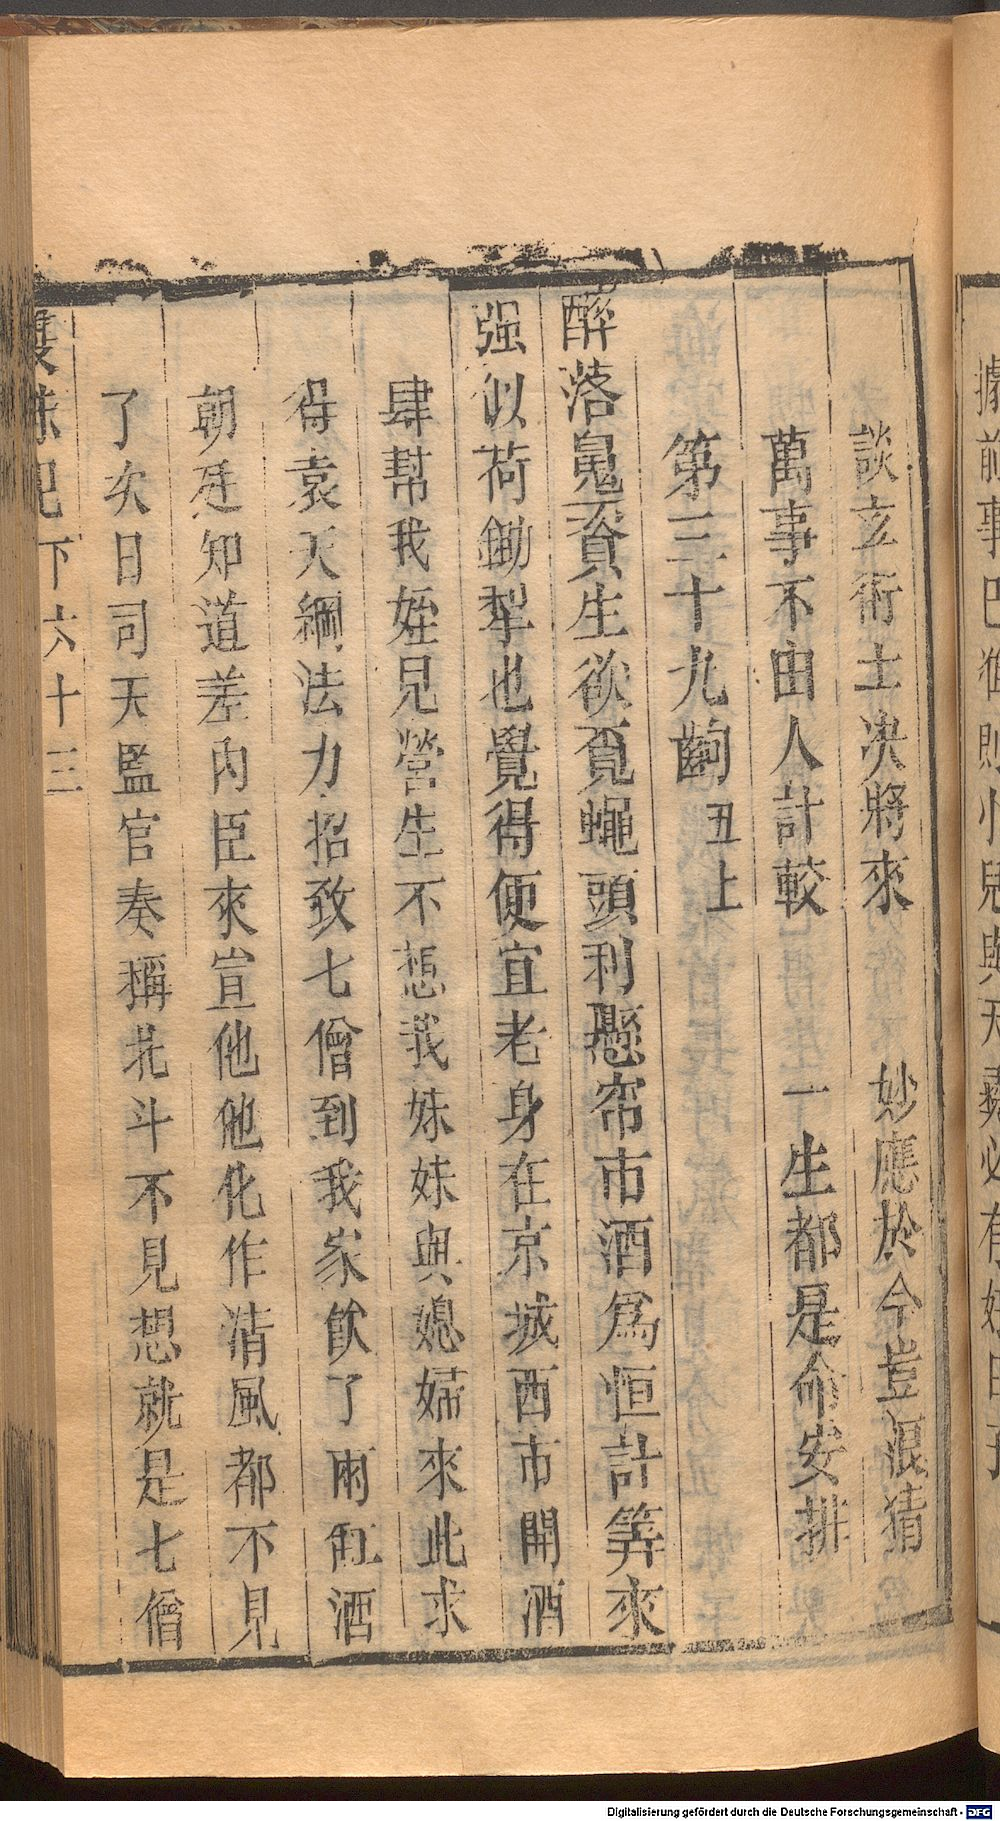 談玄術士决將來　妙應於今豈浪猜
萬事不由人計較　一生都是命安排
第三十九齣 丑上
醉落䰟貪生欲覓蠅頭利懸帘市酒爲恒計筭來
强似荷鋤犁也覺得便宜老身在京城西市開酒
肆幫我姪兒營生不想我妹妹與媳婦來此求
得袁天綱法力招致七僧到我家飲了兩缸酒
朝廷知道差内臣來宣他他化作清風都不見
了次日司天監官奏稱北斗不見想就是七僧
雙珠記 下 六十三
據前事已准則小兒與天彛必有好日子
Digitalisierung gefördert durch die Deutsche Forschungsgemeinschaft - DFG